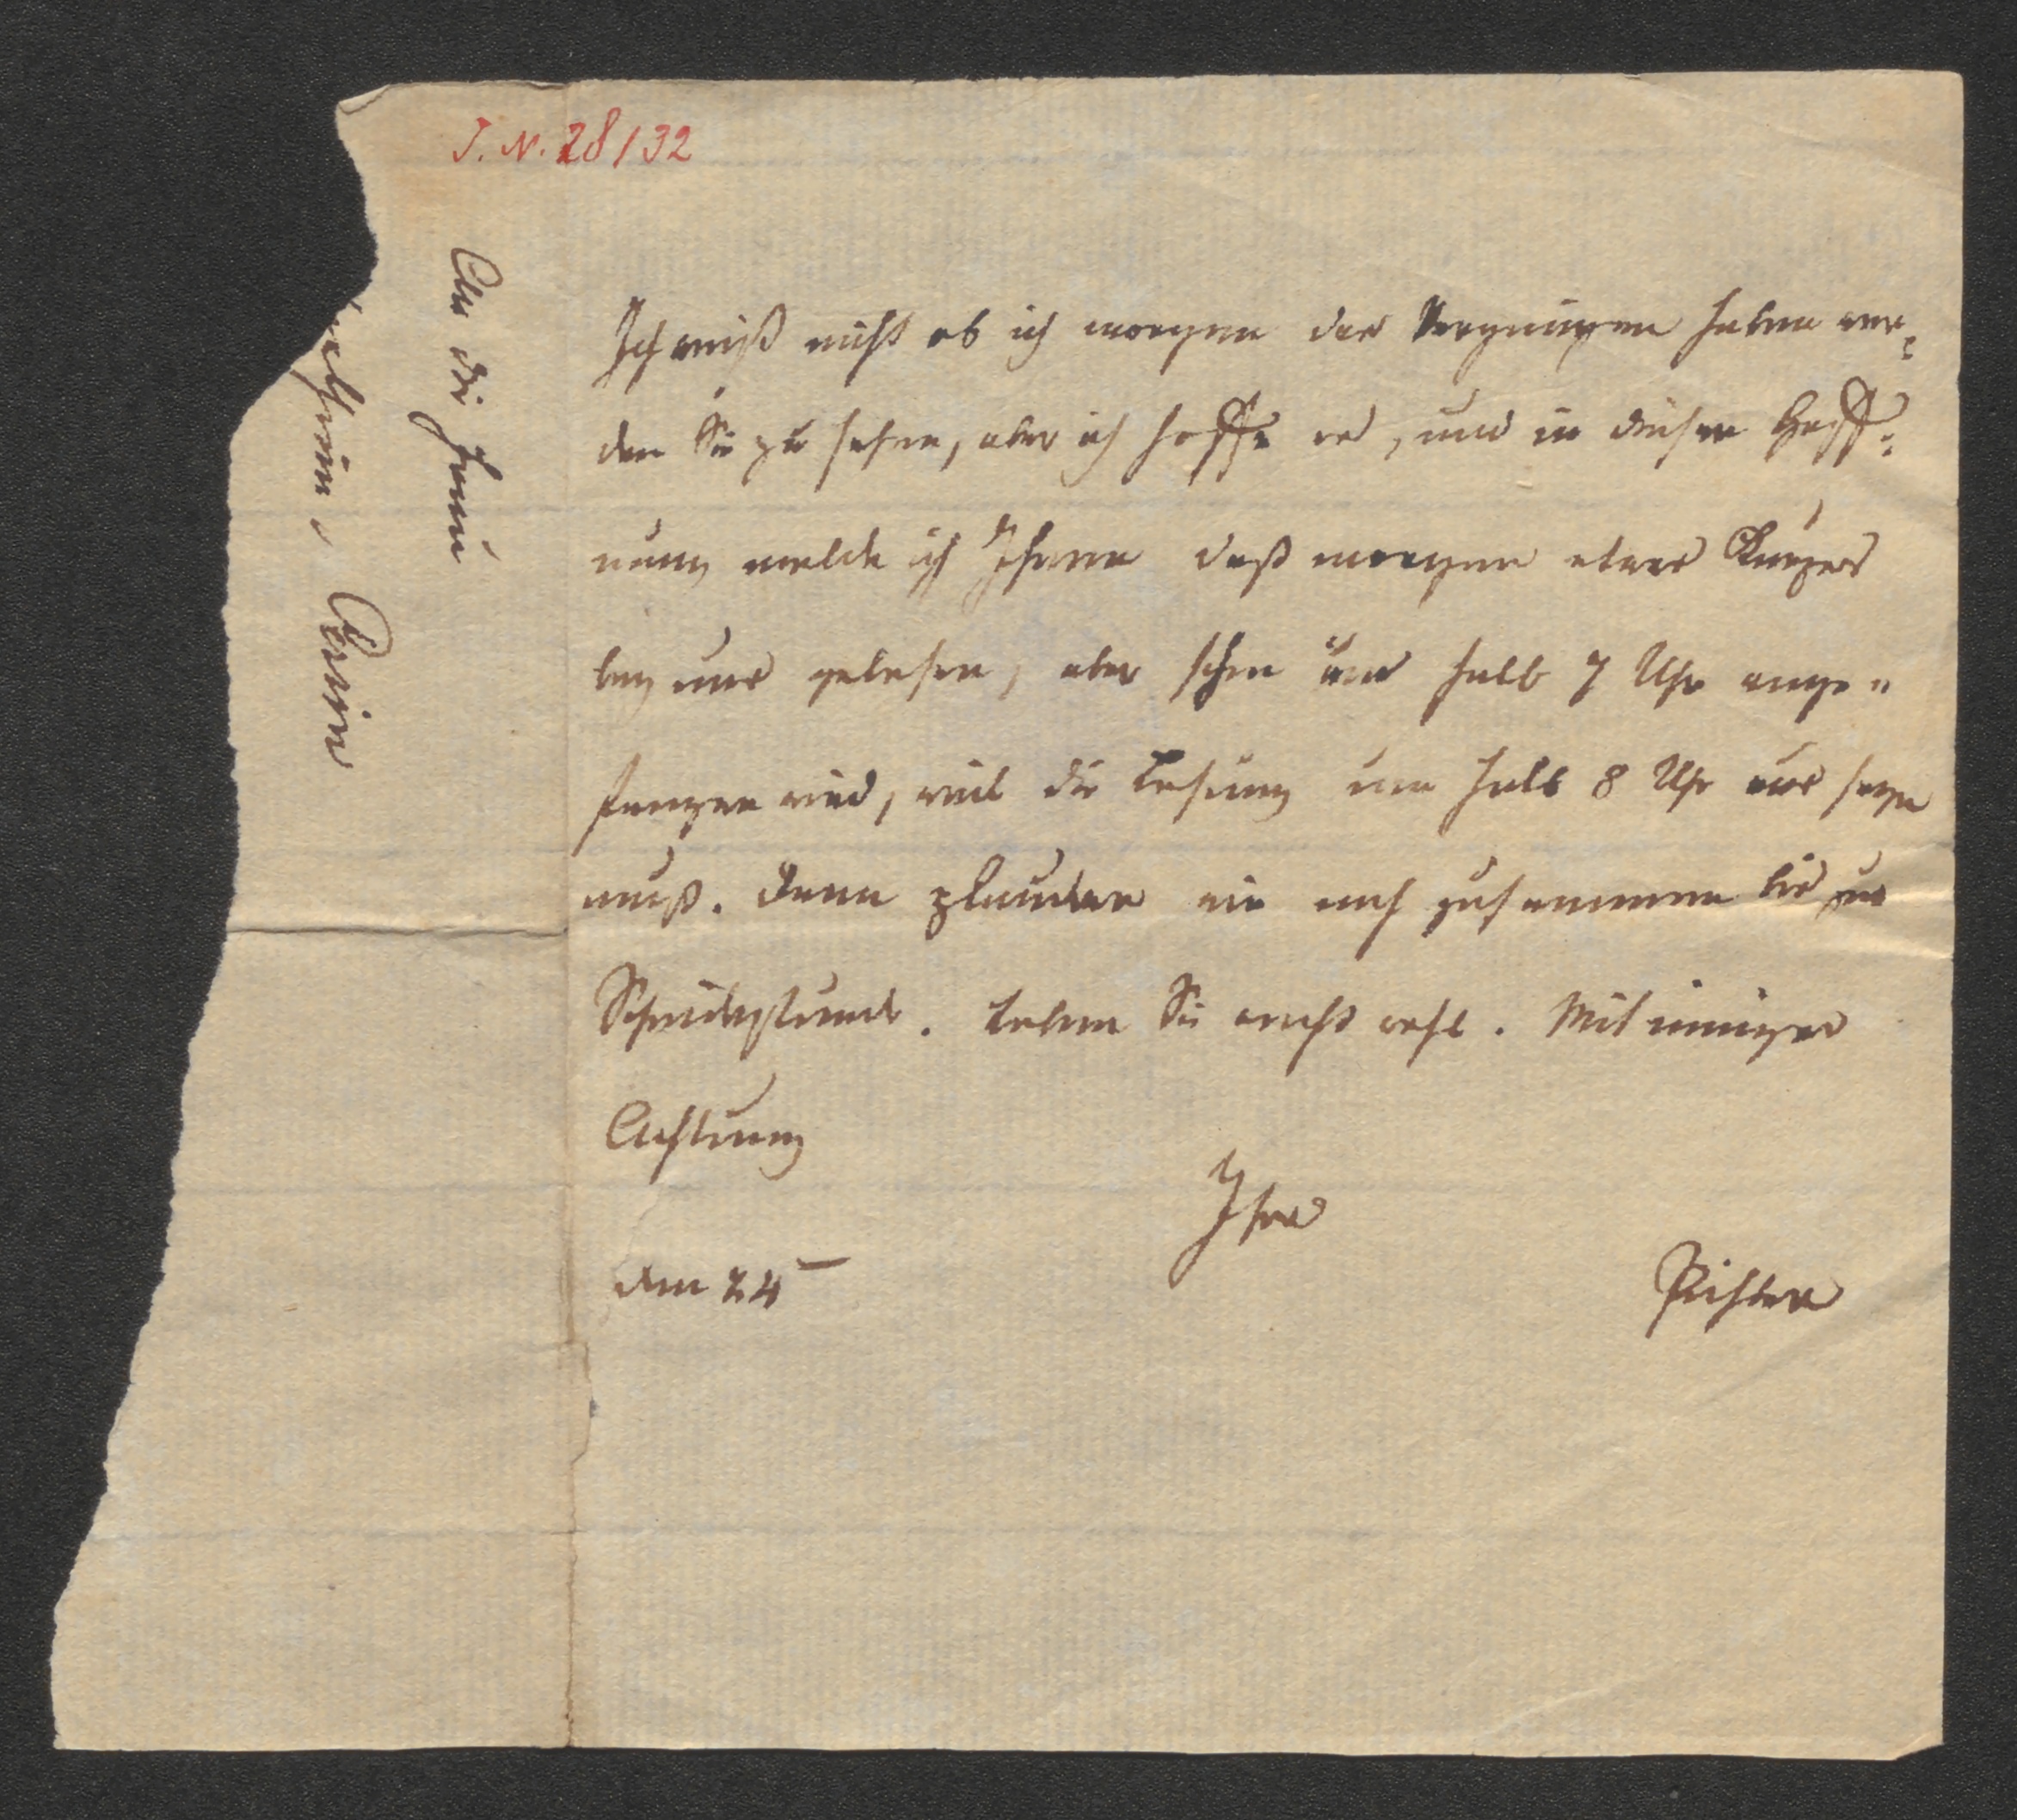 J. N. 28/32
An die Frau
Ich weiß nicht ob ich morgen das Vergnügen haben wer=
den Sie zu sehen, aber ich hoffe es, und in dieser Hoff=
nung melde ich Ihnen daß morgen etwas Kurzes
bey uns gelesen, aber schon um halb 7 Uhr ange=
fangen wird, weil die Lesung um halb 8 Uhr aus seyn
muß. Dann plaudern wir noch zusammen bis zur
Scheidestunde. Leben Sie recht wohl. Mit inniger
Achtung
Ihr
den 24
Richter